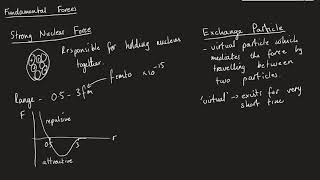 Fundamental Forces
Strong Nuclear Force
Responsible for holding nucleus
together.
femto x10^-15
Range - 0.5 - 3fm
F
repulsive
0.5
3
r
attractive
Exchange Particle
- virtual particle which
mediates the force by
travelling between
two particles.
'virtual' → exists for very
short time